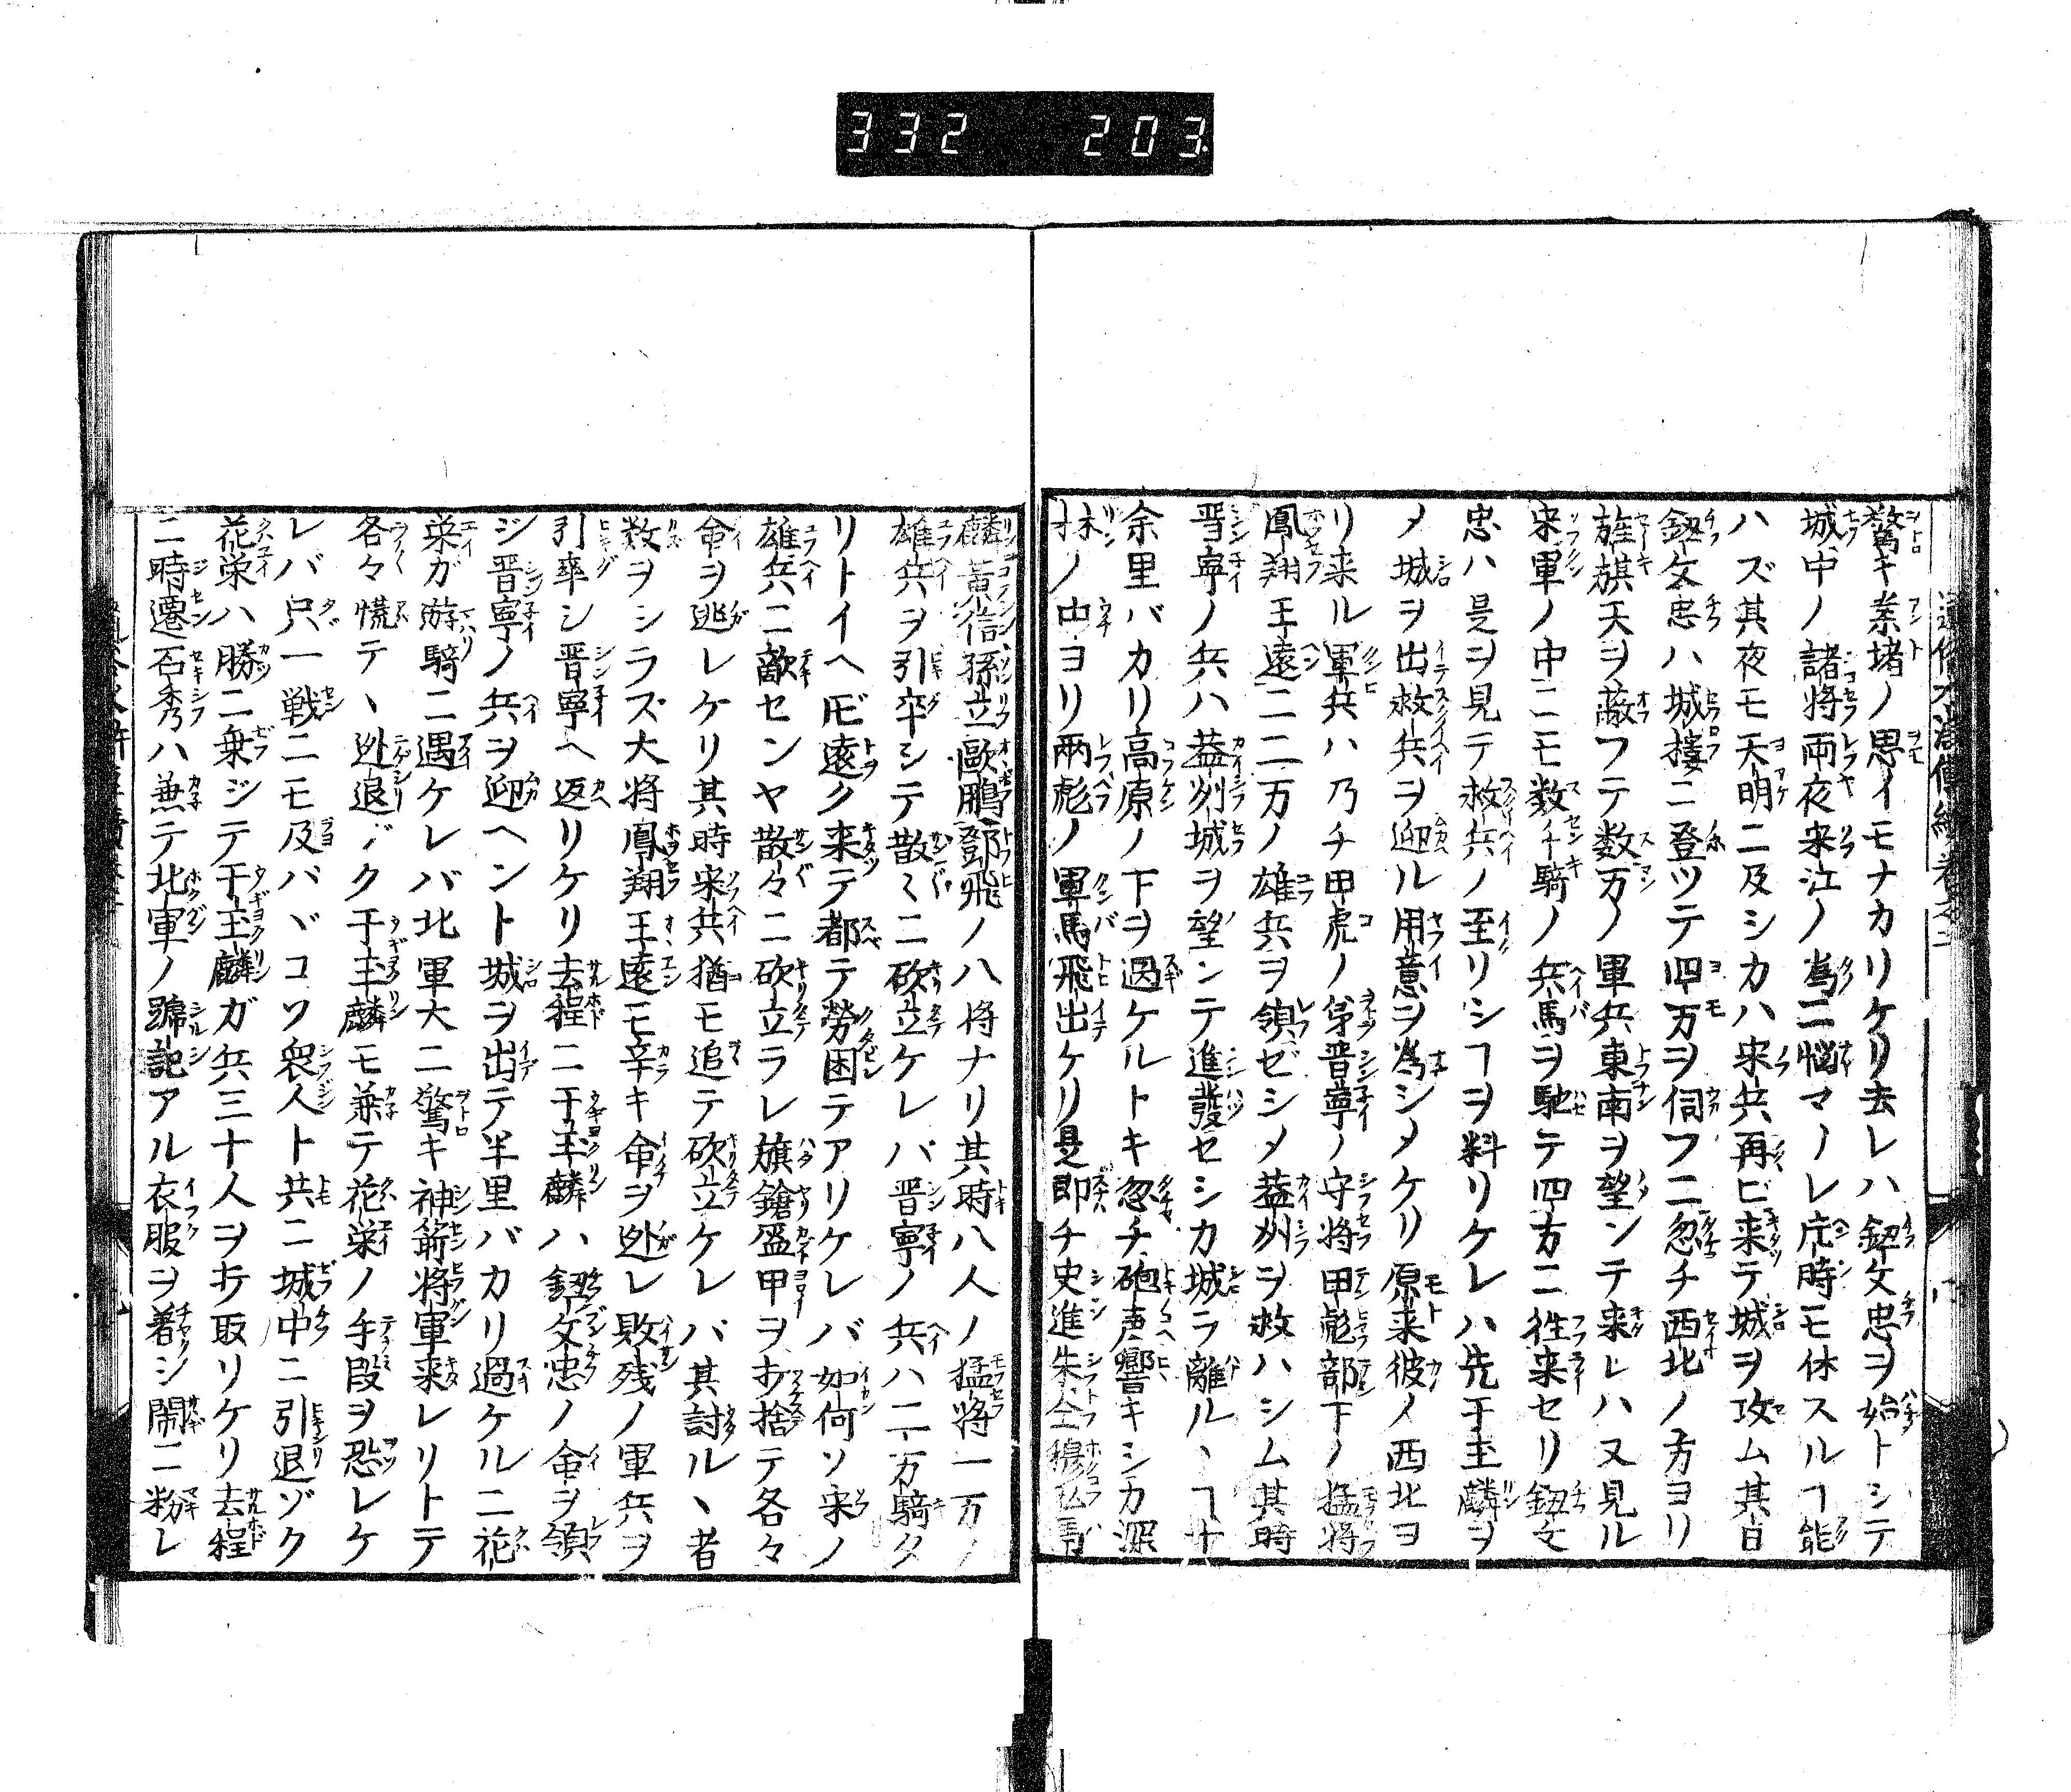 332 203
驚キ案堵ノ思イモナカリケリ去レハ鈕文忠ヲ始トシテ
城中ノ諸將両夜宋江ノ為ニ悩マノレ片時モ休スルヿ能
ハズ其夜モ天明ニ及シカハ宋兵再ビ来テ城ヲ攻ム其日
鈕文忠ハ城樓ニ登ツテ四方ヲ伺フニ忽チ西北ノ方ヨリ
旌旗天ヲ蔽フテ数万ノ軍兵東南ヲ望ンテ来レハ又見ル
宋軍ノ中ニモ数千騎ノ兵馬ヲ馳テ四方ニ徃来セリ鈕文
忠ハ是ヲ見テ救兵ノ至リシヿヲ料リケレハ先于玉麟ヲ
メ城ヲ出救兵ヲ迎ル用意ヲ為シメケリ原来彼ノ西北ヨ
リ来ル軍兵ハ乃チ田虎ノ弟晋寧ノ守将田彪部下ノ猛将
鳳翔王遠ニ二万ノ雄兵ヲ領ゼシメ葢州ヲ救ハシム其時
晋寧ノ兵ハ葢州城ヲ望ンテ進發セシカ城ヲ離ルヽヿ十
余里バカリ高原ノ下ヲ過ケルトキ忽チ砲声響キシカ深
林ノ中ヨリ両彪ノ軍馬飛出ケリ是即チ史進朱仝穆弘馬
麟黄信孫立歐鵬鄧飛ノ八将ナリ其時八人ノ猛将一万ノ
雄兵ヲ引卒シテ散々ニ砍立ケレバ晋寧ノ兵ハ二万騎タ
リトイヘ𪜈遠ク来テ都テ勞困テアリケレバ如何ソ宋ノ
雄兵ニ敵センヤ散々ニ砍立ラレ旗鎗盔甲ヲ打捨テ各々
命ヲ逃レケリ其時宋兵猶モ追テ砍立ケレバ其討ルヽ者
数ヲシラズ大将鳳翔王遠モ辛キ命ヲ迯レ敗残ノ軍兵ヲ
引率シ晋寧ヘ返リケリ去程ニ于玉麟ハ鈕文忠ノ命ヲ領
ジ晋寧ノ兵ヲ迎ヘント城ヲ出テ半里バカリ過ケルニ花
栄ガ游騎ニ遇ケレバ北軍大ニ驚キ神箭将軍来レリトテ
各々慌テヽ迯退ゾク于玉麟モ兼テ花栄ノ手段ヲ恐レケ
レバ只一戦ニモ及バヾコソ衆人ト共ニ城中ニ引退ゾク
花栄ハ勝ニ乗ジテ于玉麟ガ兵三十人ヲ打取リケリ去程
ニ時遷石秀ハ兼テ北軍ノ號記アル衣服ヲ着シ鬧ニ粉レ